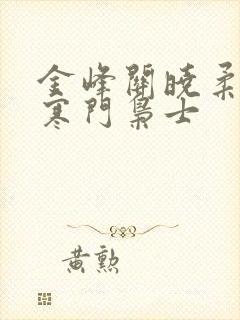 金峰關曉柔
寒門梟士
黃勲